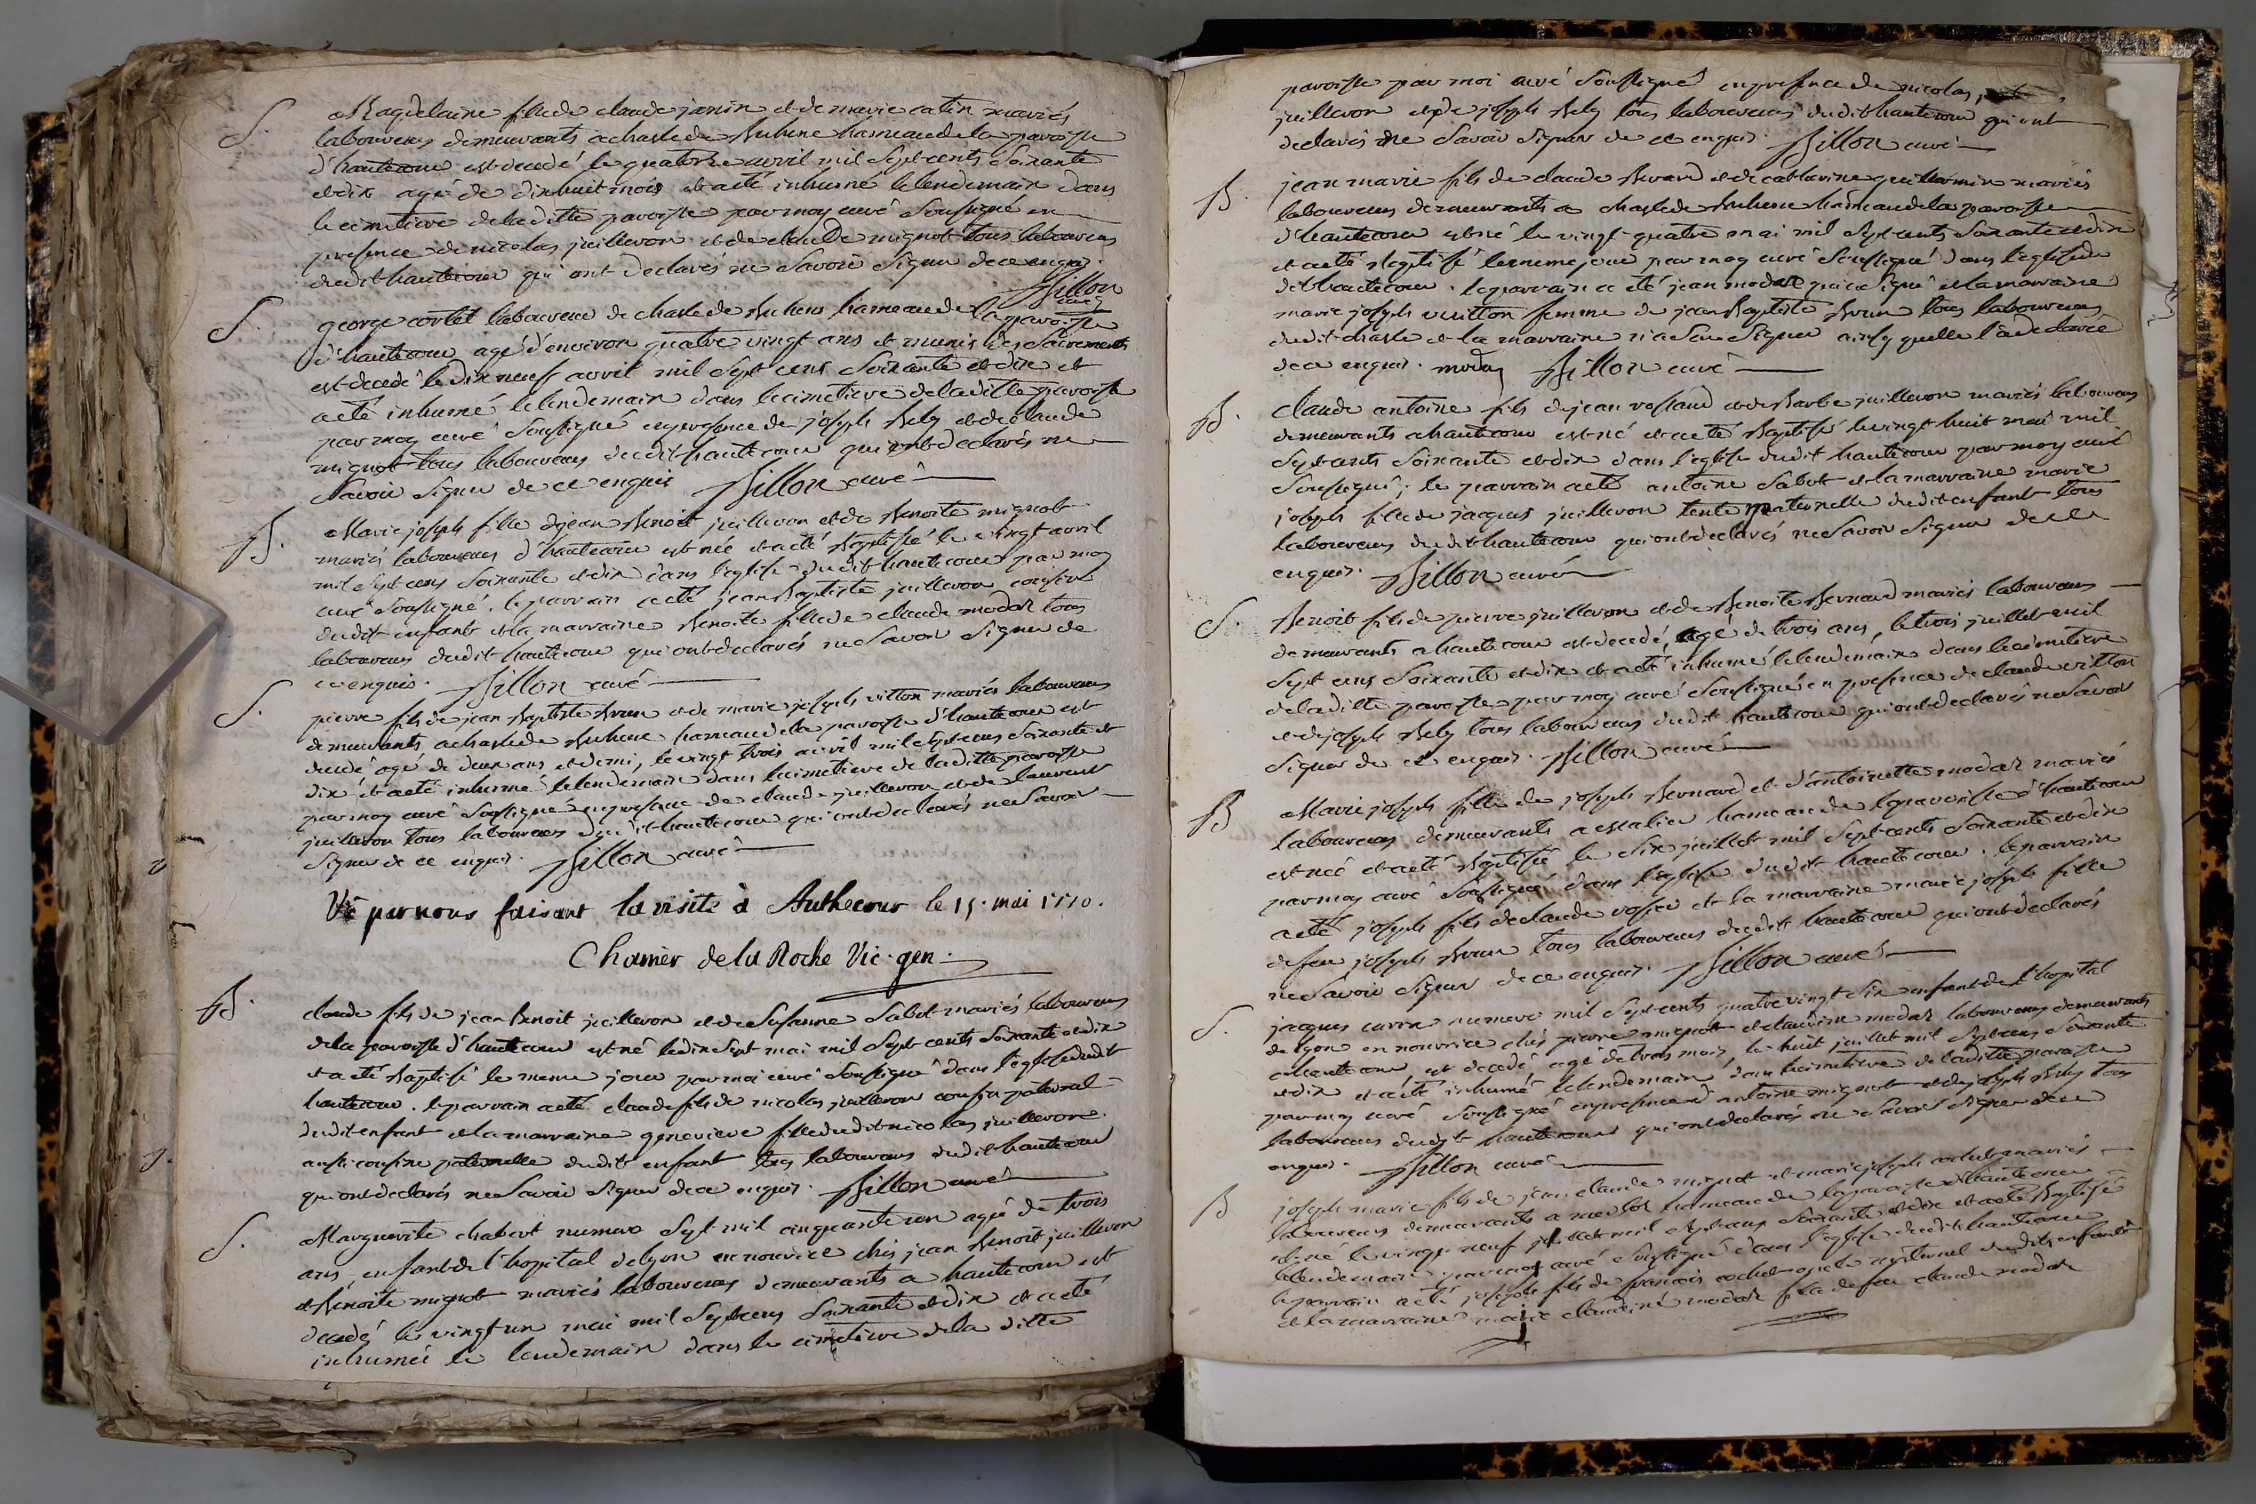 S. Magdelaine fille de claude janin et de marie catin mariés
laboureurs demeurants a chasle de hameau de la paroisse
d'hautecour est decedé le quatorze avril mil sept cents soixante
et dix agé de dix huit mois et a eté inhumé le lendemain dans
le cimetiere de laditte paroisse par moy curé soussigné en
presence de nicolas juilleron et de claude mignot tous laboureurs
dudit hautecour qui ont declarés ne savoir signer de ce enquis.
Sillon curé
S. george cortet laboureur de chasle de hameau de la paroisse
d'hautecour agé d'environ quatre vingt ans et munis des sacrements
est decedé le dix neuf avril mil sept cens soixante et dix et
a eté inhumé le lendemain dans le cimetiere de laditte paroisse
par moy curé soussigné en presence de joseph Rely et de claude
mignot tous laboureurs dudit hautecour qui ont declarés ne
savoir signer de ce enquis Sillon curé
B. Marie joseph fille de jean Benoit juilleron et de Benoite mignot
mariés laboureurs d'hautecour est née et a eté Baptisé le vingt avril
mil sept cens soixante et dix dans l'eglise dudit hautecour par moy
curé soussigné. le parrain a eté jean Baptiste juilleron cousin
dudit enfant et la marraine Benoite fille de claude modas tous
laboureurs dudit hautecour qui ont declarés ne savoir signer de
ce enquis. Sillon curé
S. pierre fils de jean Baptiste Brun et de marie joseph vitton mariés laboureurs
demeurants a chasle de hameau de la paroisse d'hautecour est
decedé agé de deux ans et demi, le vingt trois avril mil sept cens soixante et
dix et a eté inhumé le lendemain dans le cimetiere de laditte paroisse
par moy curé soussigné en presence de claude juilleron et de laurent
juilleron tous laboureurs dudit hautecour qui ont declarés ne savoir
signer de ce enquis. Sillon curé
Vû par nous faisant la visite à Authecour le 15. mai 1770.
Chamier de la Roche Vic. gen.
B. claude fils de jean Benoit juilleron et de Susanne Sabot mariés laboureurs
de la paroisse d'hautecour est né le dix sept mai mil sept cents soixante et dix
et a eté Baptisé le meme jour par moi curé soussigné dans l'eglise dudit
hautecour. le parrain a eté claude fils de nicolas juilleron cousin paternel
dudit enfant et la marraine genevieve fille dudit nicolas juilleron
aussi cousine paternelle dudit enfant tous laboureurs dudit hautecour
qui ont declarés ne savoir signer de ce enquis. Sillon curé
S. Marguerite chabert numero sept mil cinquante un agé de trois
ans, enfant de l'hopital de lyon en nourrice chés jean Benoit juilleron
et Benoite mignot mariés laboureurs demeurants a hautecour est
decedé le vingt un mai mil sept cens soixante et dix et a eté
inhumée le lendemain dans le cimetiere de la ditte
paroisse par moi curé soussigné en presence de nicolas,
juilleron et de joseph Rely tous laboureurs dudit hautecour qui ont
declarés ne savoir signer de ce enquis. Sillon curé
B. jean marie fils de claude Berard et de catharine guillermin mariés
laboureurs demeurants a chasle de hameau de la paroisse
d'hautecour est né le vingt quatre mai mil sept cents soixante et dix
et a eté Baptisé le meme jour par moy curé soussigné dans l'eglise du
dit hautecour. le parrain a eté jean modas qui a signé et la marraine
marie joseph vuitton femme de jean Baptiste Brun tous laboureurs
dudit chasle et la marraine n'a sçu signer ainsy quelle l'a declaré
de ce enquis. modas Sillon curé
B. claude antoine fils de jean rossand et de Barbe juilleron mariés laboureurs
demeurants a hautecour est né et a eté Baptisé le vingt huit mai mil
sept cents soixante et dix dans l'eglise dudit hautecour par moy curé
soussigné; le parrain a eté antoine Sabot et la marraine marie
joseph fille de jacques juilleron tente maternelle dudit enfant tous
laboureurs dudit hautecour qui ont declarés ne savoir signer de ce
enquis. Sillon curé
S. Benoit fils de pierre juilleron et de Benoite Bernard mariés laboureurs
demeurants a hautecour est decedé, agé de trois ans, le trois juillet mil
sept cens soixante et dix et a eté inhumé le lendemain dans le cimetiere
de laditte paroisse par moy curé soussigné en presence de claude vitton
et de joseph Rely tous laboureurs dudit hautecour qui ont declarés ne savoir
signer de ce enquis. Sillon curé
B Marie joseph fille de joseph Bernard et d'antoinette modas mariés
laboureurs demeurants a hameau de la paroisse d'hautecour
est née et a eté Baptisée le six juillet mil sept cents soixante et dix
par moy curé soussigné dans l'eglise dudit hautecour. le parrain
a eté joseph fils de claude et la marraine marie joseph fille
de feu joseph Brun tous laboureurs dudit hautecour qui ont declarés
ne savoir signer de ce enquis. Sillon curé
S. jacques numero mil sept cents quatre vingt six enfant de l'hopital
de lyon en nourrice chés pierre mignot et claudine modas laboureurs demeurants
a hautecour est decedé agé de trois mois, le huit juillet mil sept cens soixante
et dix et a eté inhumé le lendemain dans le cimetiere de laditte paroisse
par moy curé soussigné en presence d'antoine mignot et de joseph Rely tous
laboureurs dudit hautecour qui ont declarés ne savoir signer de ce
enquis. Sillon curé
B joseph marie fils de jean claude mignot et marie joseph cochet mariés
laboureurs demeurants a hameau de la paroisse d'hautecour
est né le vingt neuf juillet mil sept cens soixante et dix et a eté Baptisé
le lendemain par moy curé soussigné dans l'eglise dudit hautecour
le parrain a eté joseph fils de francois cochet oncle maternel dudit enfant
et la marraine marie claudine modas fille de feu claude modas